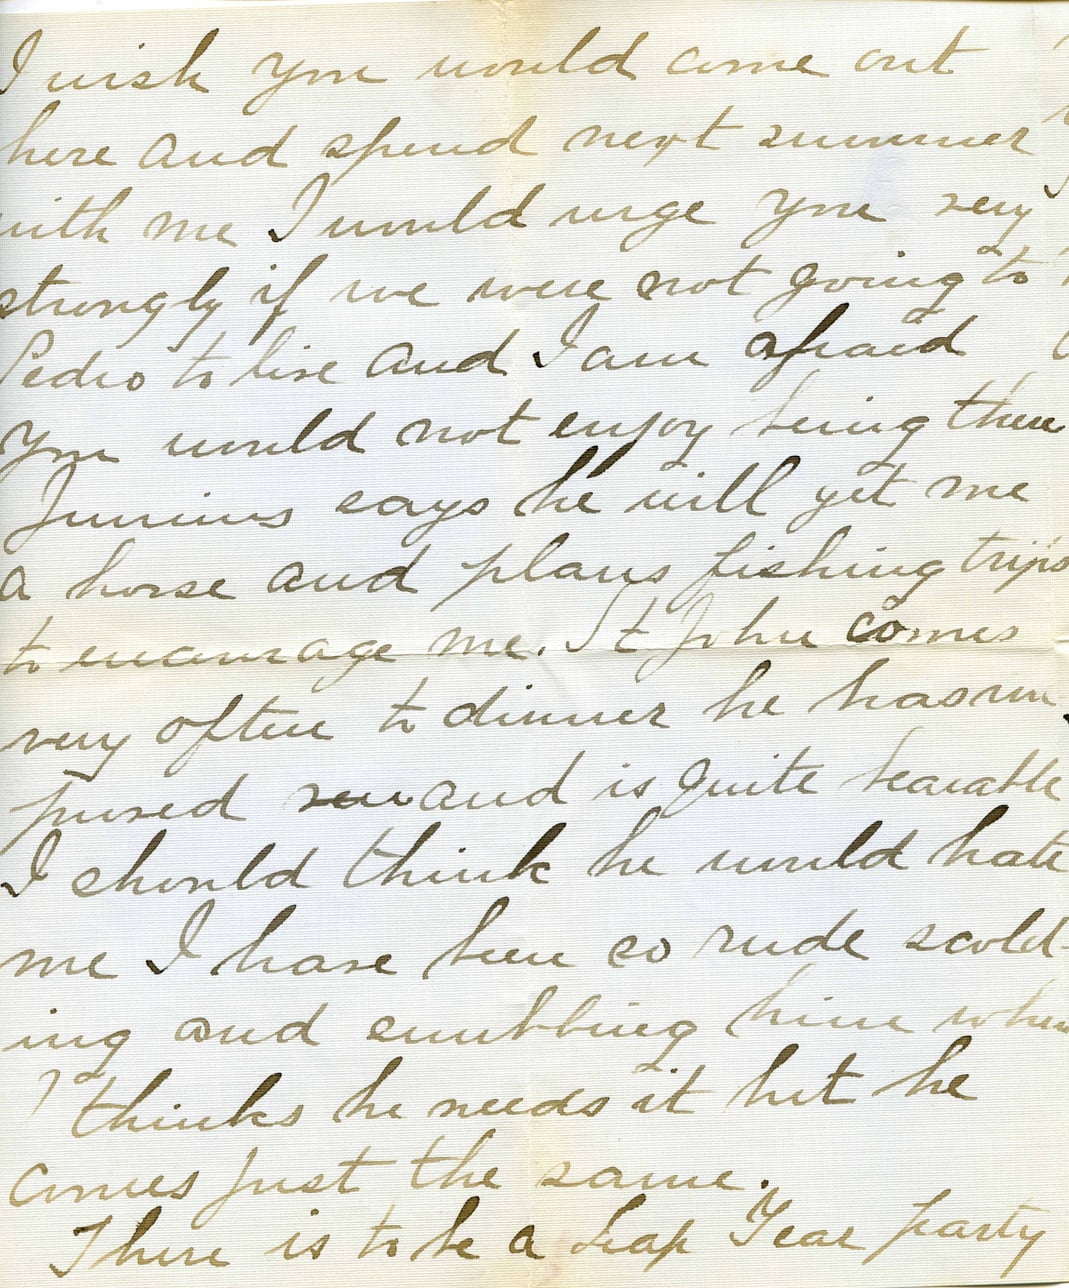 I wish you would come out
here and spend next summer
with me I would urge you very
strongly if we were not going to
Pedro to live and I am afraid
you would not enjoy being there
Junius says he will get me
a horse and plans fishing trips
to encourage me. St John comes
very often to dinner he has im-
proved and is quite bearable
I should think he would hate
me I have been so rude scold-
ing and snubbing him when
I thinks he needs it but he
comes just the same.
There is to be a Leap Year party